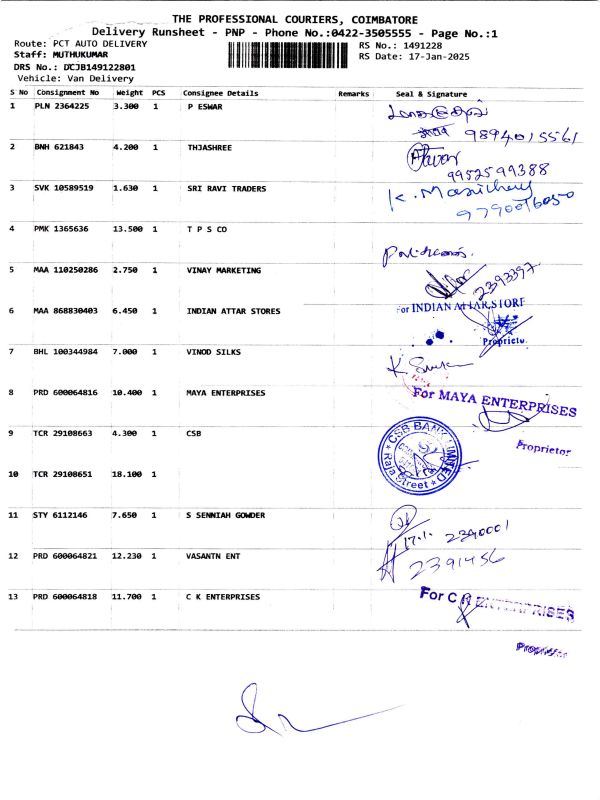 THE PROFESSIONAL COURIERS, COIMBATORE
Delivery Runsheet - PNP - Phone No.:0422-3505555 - Page No.:1
Route: PCT AUTO DELIVERY RS No.: 1491228
Staff: MUTHUKUMAR RS Date: 17-Jan-2025
DRS No.: DCJB149122801
Vehicle: Van Delivery
S No Consignment No Weight PCS Consignee Details Remarks Seal & Signature
1 PLN 2364225 3.300 1 P ESWAR
9894015561
2 BNH 621843 4.200 1 THJASHREE
9952599388
3 SVK 10589519 1.630 1 SRI RAVI TRADERS K.
9790016050
4 PMK 1365636 13.500 1 T P S CO
5 MAA 110250286 2.750 1 VINAY MARKETING 2393397
6 MAA 868830403 6.450 1 INDIAN ATTAR STORES For INDIAN ATTAR STORE
Proprietor
7 BHL 100344984 7.000 1 VINOD SILKS K.
8 PRD 600064816 10.400 1 MAYA ENTERPRISES For MAYA ENTERPRISES
Proprietor
9 TCR 29108663 4.300 1 CSB CSB BANK LIMITED
Raja Street
10 TCR 29108651 18.100 1
11 STY 6112146 7.650 1 S SENNIAH GOWDER 17.1. 2390001
12 PRD 600064821 12.230 1 VASANTN ENT 2391456
13 PRD 600064818 11.700 1 C K ENTERPRISES For C K ENTERPRISES
Proprietor